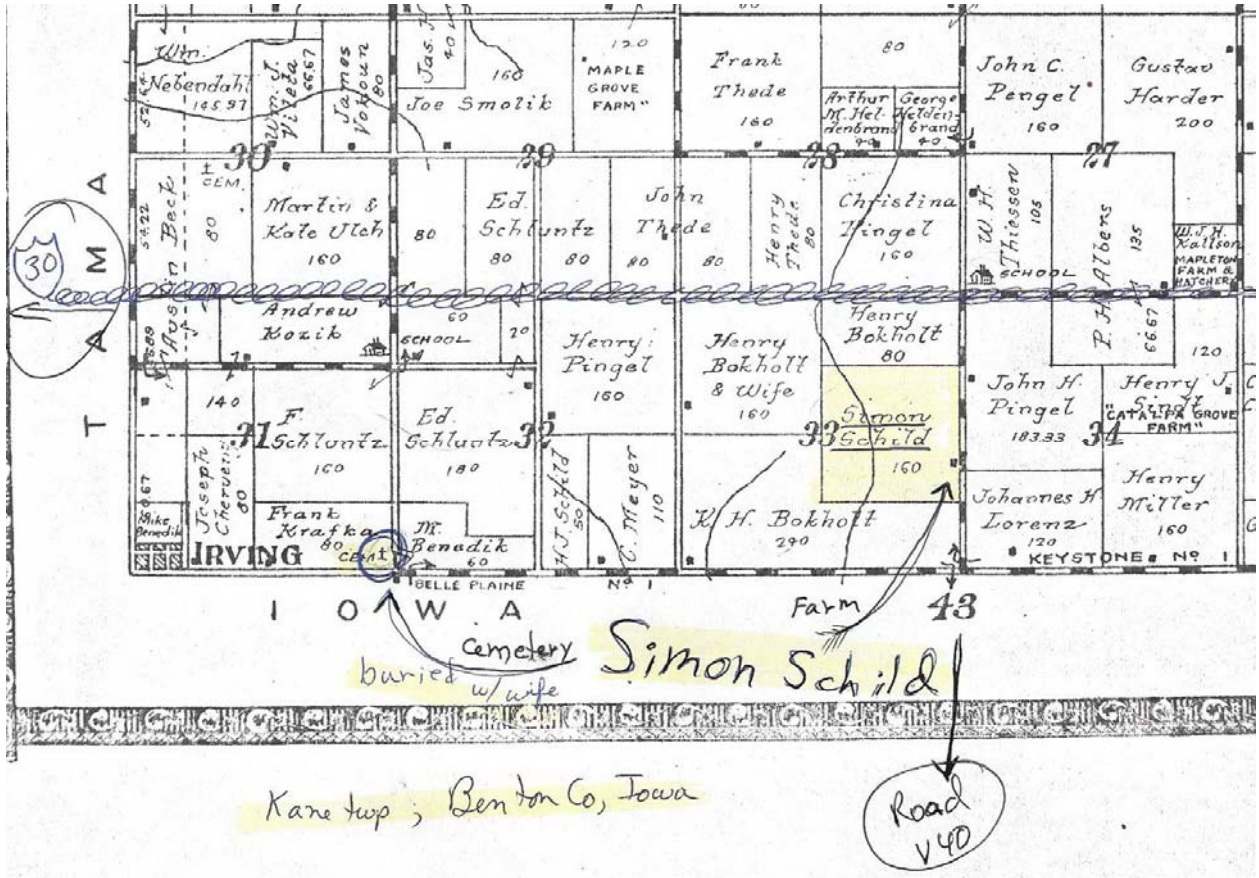 Wm.
Nebendahl
145.97
Wm. J.
Viteta
66.67
James
Vokoun
80
Jas.
40
160
Joe Smolik
120
"MAPLE
GROVE
FARM"
Frank
Thede
160
80
Arthur
M. Hel-
denbrand
40
George
Helden-
brand
40
John C.
Pengel
160
Gustav
Harder
200
30
29
28
27
TAMA
30
54.22
Austin Beck
CEM.
80
Martin &
Kate Ulch
160
80
Ed.
Schluntz
80
80
John
Thede
80
80
Henry
Thede
80
Christina
Pingel
160
W. H.
Thiessen
105
SCHOOL
P. H. Albens
135
66.67
W. J. H.
Kallson
MAPLETON
FARM &
HATCHERY
Andrew
Kozik
SCHOOL
60
20
Henry
Pingel
160
Henry
Bokholt
& Wife
160
Henry
Bokholt
80
120
140
31
F.
Schluntz
160
Ed.
Schluntz
180
32
33
Simon
Schild
160
John H.
Pingel
183.33
Henry J.
"CATALPA GROVE
FARM"
34
Joseph
Cherveny
80
Mike
Benedik
IRVING
Frank
Krafka
80
Cem
M.
Benedik
60
H.J. Schild
50
C. Meyer
110
K. H. Bokholt
240
Johannes H
Lorenz
120
Henry
Miller
160
KEYSTONE No 1
BELLE PLAINE No 1
IOWA
43
Farm
Cemetery
buried w/ wife
Simon Schild
Kane twp, Benton Co, Iowa
Road
V40